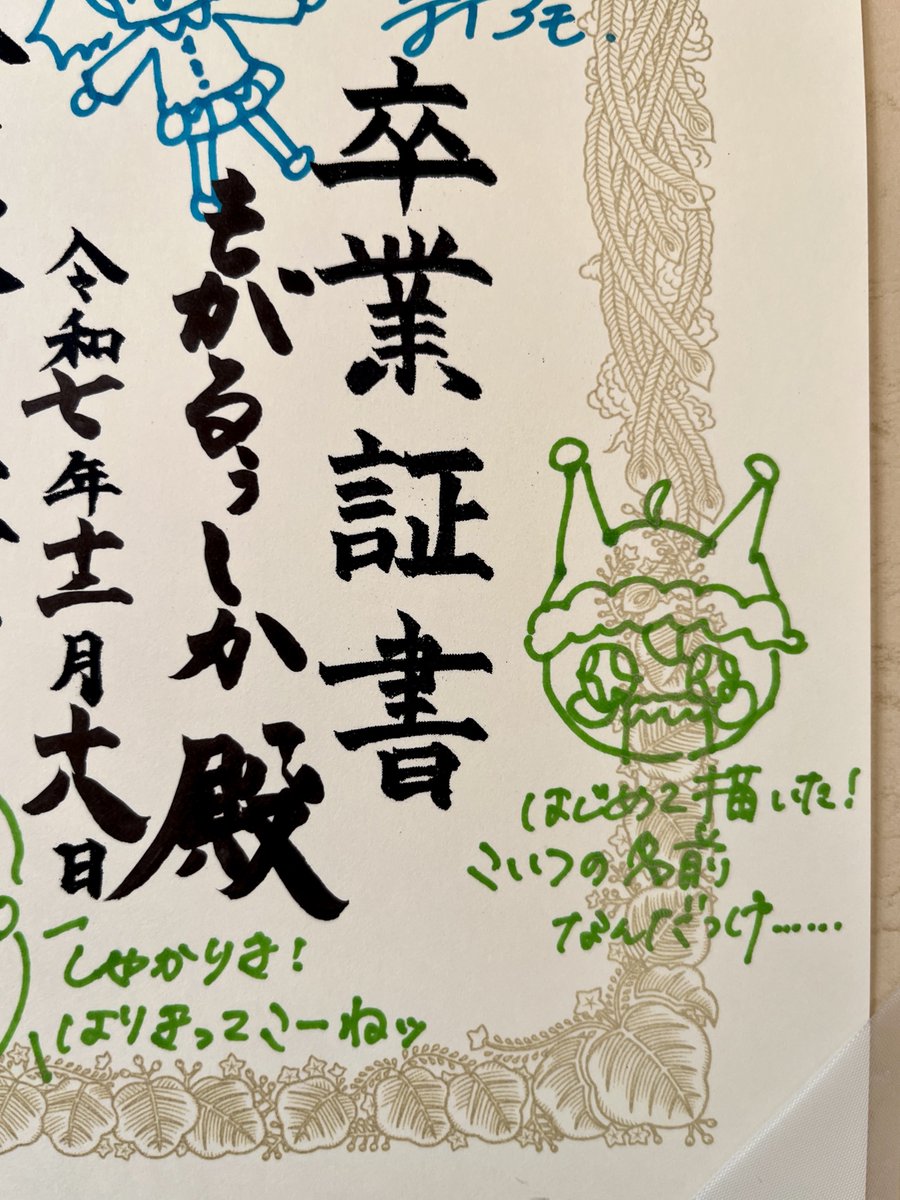 卒業証書
もがるぅしか殿
令和七年十二月十八日
はじめて描いた!
こいつの名前
なんだっけ……
しゃかりき!
はりきってこーねッ